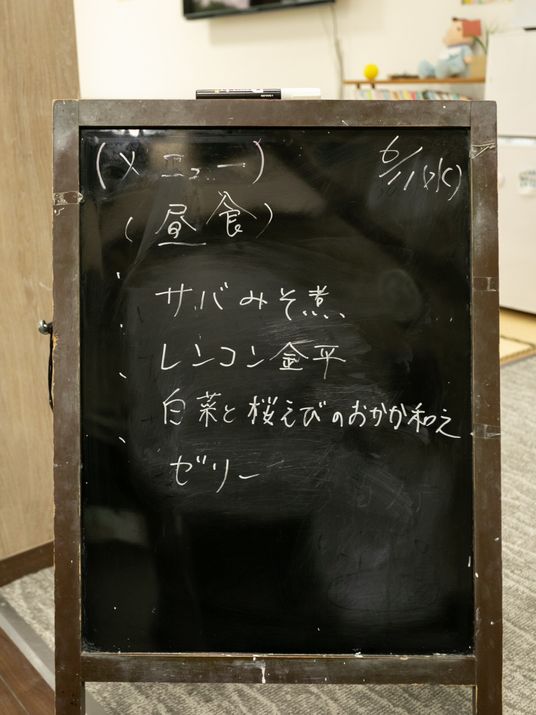 (メニュー) 6/1(水)
(昼食)
・サバみそ煮
・レンコン金平
・白菜と桜えびのおかか和え
・ゼリー